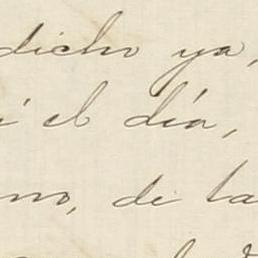 dicho ya,
i el día,
no, de la